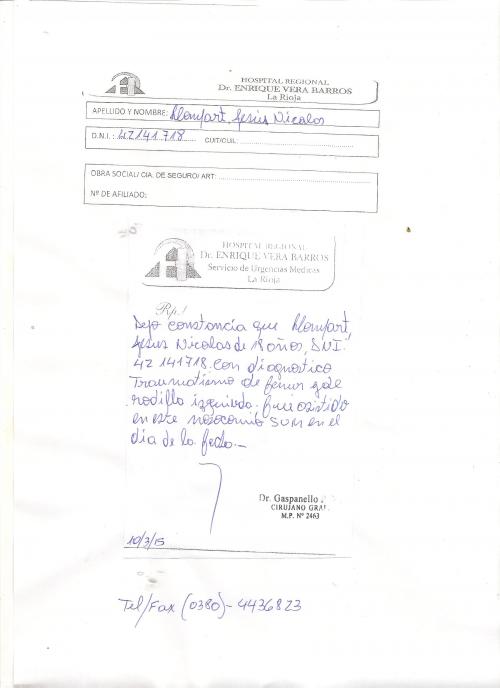 HOSPITAL REGIONAL
Dr. ENRIQUE VERA BARROS
La Rioja
APELLIDO Y NOMBRE: Llompart, Jesús Nicolas
D.N.I. : 42141.718 CUIT/CUIL:
OBRA SOCIAL/ CIA. DE SEGURO/ ART:
Nº DE AFILIADO:
HOSPITAL REGIONAL
Dr. ENRIQUE VERA BARROS
Servicio de Urgencias Medicas
La Rioja
Rp./
Dejo constancia que Llompart,
Jesus Nicolas de años, DNI.
42 141718. con diagnostico
Traumatismo de femur
rodilla izquierda. fue asistido
en este nosocomio en el
dia de la fecha.-
Dr. Gaspanello
CIRUJANO GRAL.
M.P. Nº 2463
10/3/15
Tel/Fax (0380)-4436823